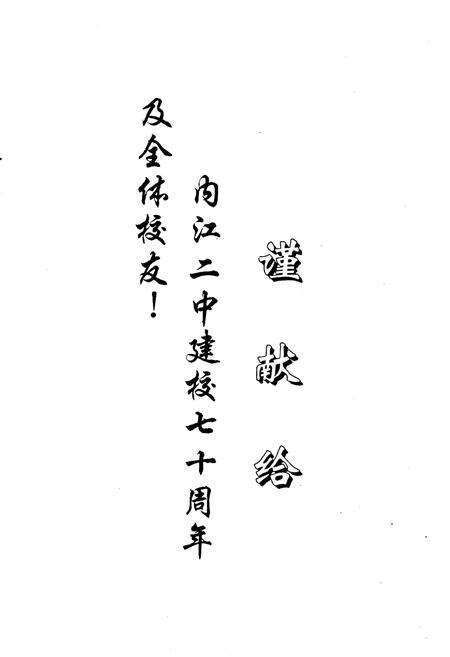 谨献给
内江二中建校七十周年
及全体校友！